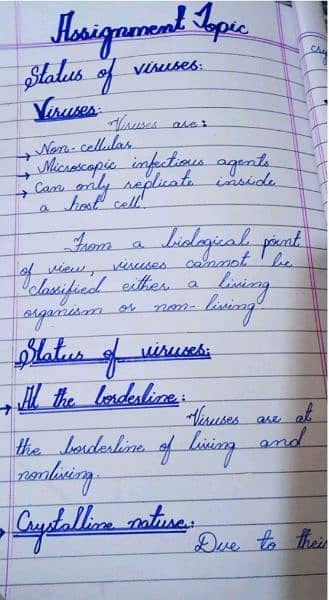 Assignment Topic
Status of viruses:
Viruses:
Viruses are:
→ Non-cellular
→ Microscopic infectious agents
→ Can only replicate inside
a host cell.
From a biological point
of view, viruses cannot be
classified either a living
organism or non-living
Status of viruses:
→ At the borderline:
Viruses are at
the borderline of living and
nonliving.
→ Crystalline nature:
Due to their